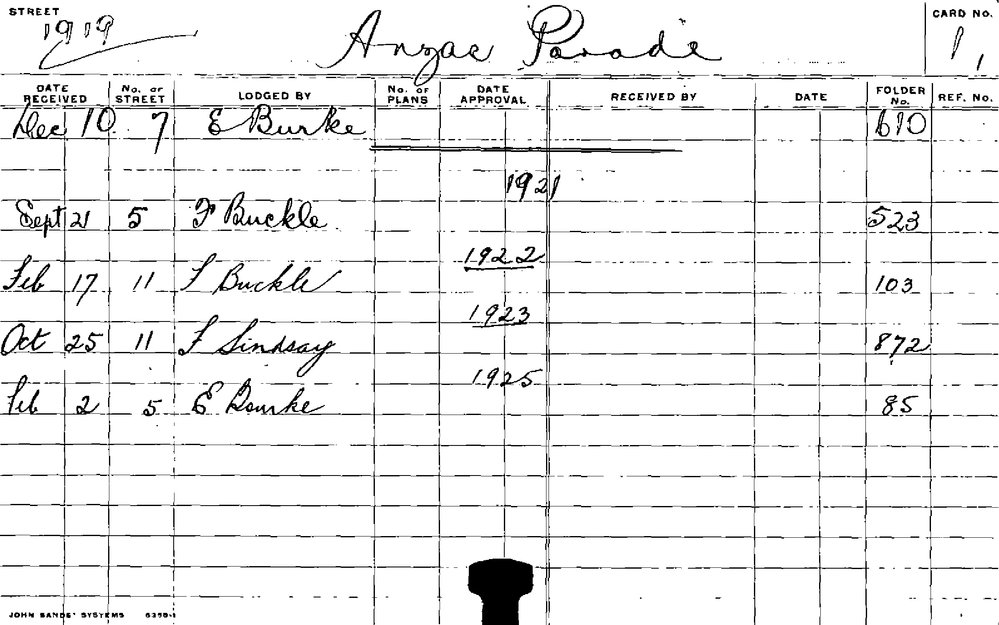 STREET Anzac Parade CARD No.
1919 1,
DATE RECEIVED No. OF STREET LODGED BY No. OF PLANS DATE APPROVAL RECEIVED BY DATE FOLDER No. REF. No.
Dec 10 7 E Burke 610
1921
Sept 21 5 F Buckle 523
1922
Feb 17 11 F Buckle 103
1923
Oct 25 11 F Lindsay 872
1925
Feb 2 5 E Bourke 85
JOHN SANDS' SYSTEMS